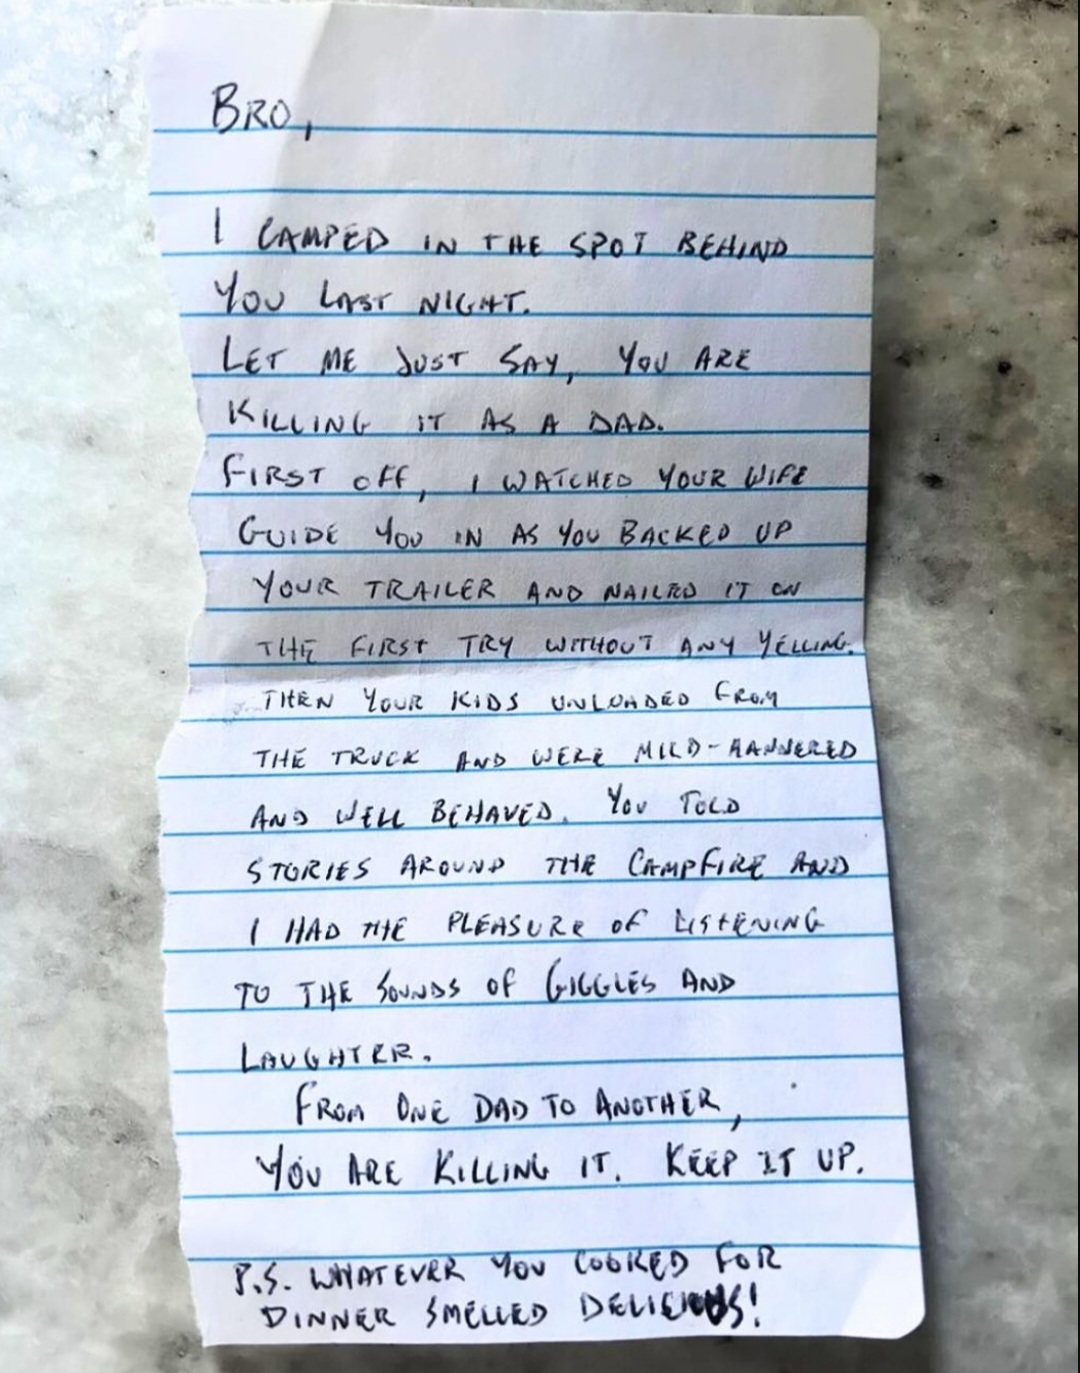 BRO,
I CAMPED IN THE SPOT BEHIND
YOU LAST NIGHT.
LET ME JUST SAY, YOU ARE
KILLING IT AS A DAD.
FIRST OFF, I WATCHED YOUR WIFE
GUIDE YOU IN AS YOU BACKED UP
YOUR TRAILER AND NAILED IT ON
THE FIRST TRY WITHOUT ANY YELLING.
THEN YOUR KIDS UNLOADED FROM
THE TRUCK AND WERE MILD-MANNERED
AND WELL BEHAVED. YOU TOLD
STORIES AROUND THE CAMPFIRE AND
I HAD THE PLEASURE OF LISTENING
TO THE SOUNDS OF GIGGLES AND
LAUGHTER.
FROM ONE DAD TO ANOTHER,
YOU ARE KILLING IT. KEEP IT UP.
P.S. WHATEVER YOU COOKED FOR
DINNER SMELLED DELICIOUS!